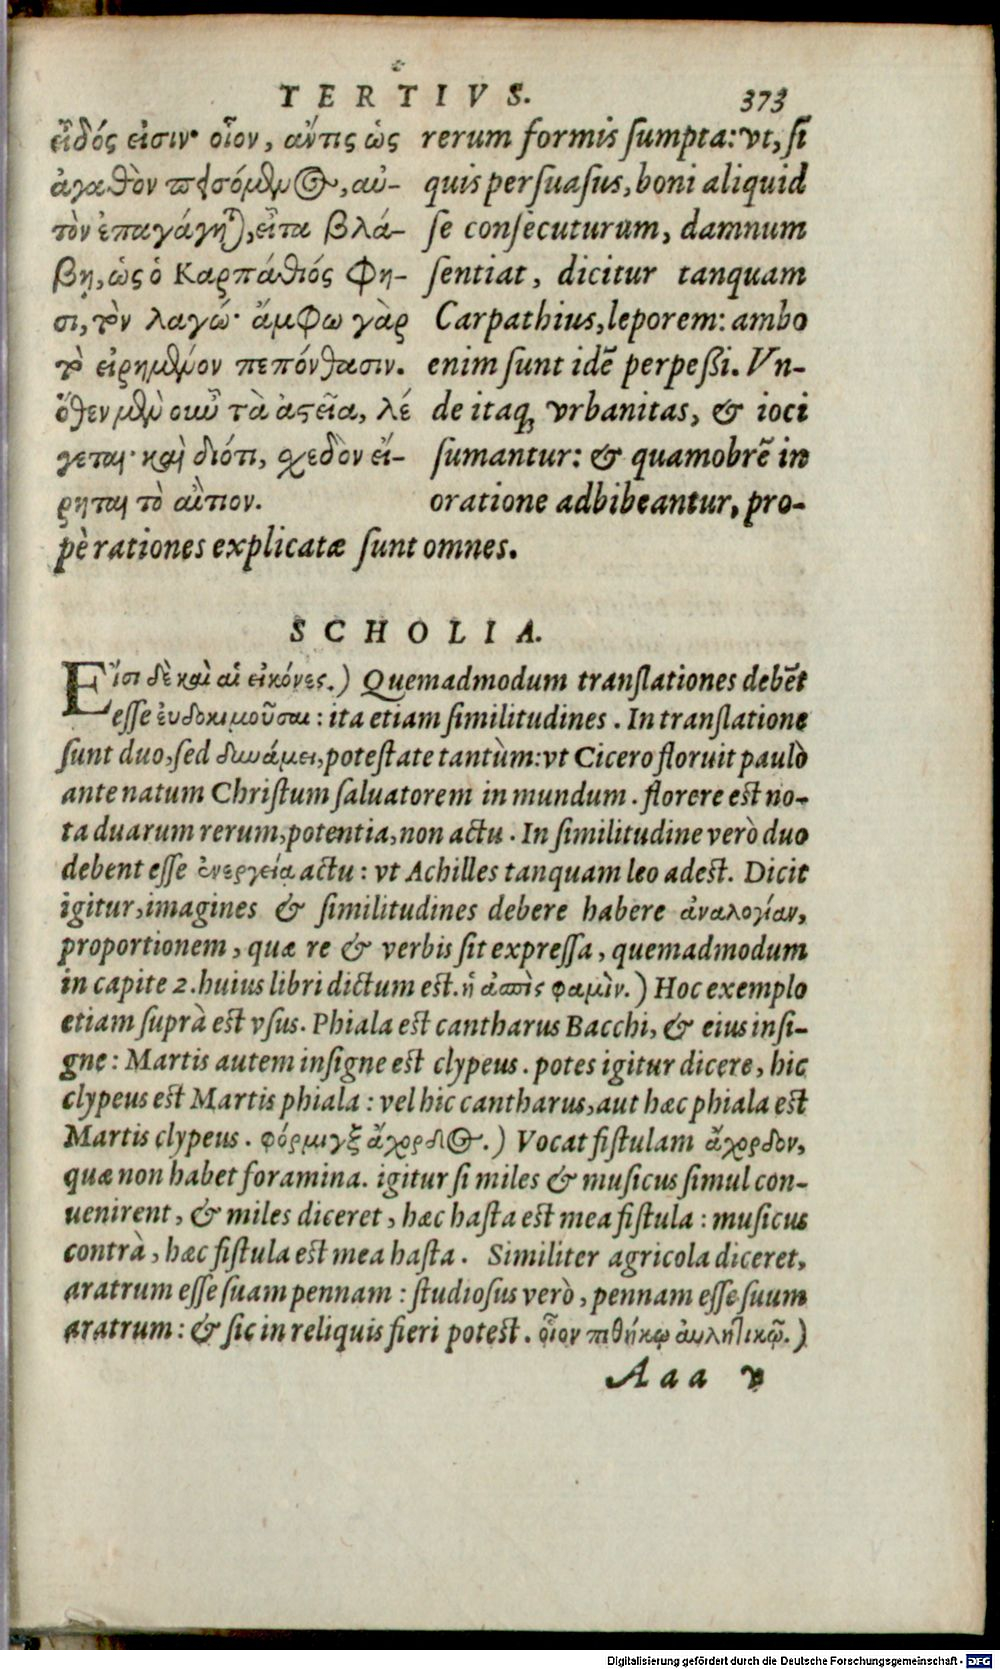 TERTIVS. 373
εἶδός εἰσιν· οἷον, ἄν τις ὡς
ἀγαθὸν πεισόμενος, αὐ-
τὸν ἐπαγάγηται, εἶτα βλά-
βῃ, ὡς ὁ Καρπάθιός φη-
σι, τὸν λαγώ· ἄμφω γὰρ
τὸ εἰρημένον πεπόνθασιν.
ὅθεν μὲν οὖν τὰ ἀστεῖα, λέ
γεται· καὶ διότι, σχεδὸν εἴ-
ρηται τὸ αἴτιον.
rerum formis sumpta: vt, si
quis persuasus, boni aliquid
se consecuturum, damnum
sentiat, dicitur tanquam
Carpathius, leporem: ambo
enim sunt idē perpeßi. Vn-
de itaq; vrbanitas, & ioci
sumantur: & quamobrē in
oratione adbibeantur, pro-
pè rationes explicatæ sunt omnes.
SCHOLIA.
Εἴσι δὲ καὶ αἱ εἰκόνες.) Quemadmodum translationes debēt
esse ἐυδοκιμοῦσαι: ita etiam similitudines. In translatione
sunt duo, sed δυνάμει, potestate tantùm: vt Cicero floruit paulò
ante natum Christum saluatorem in mundum. florere est no-
ta duarum rerum, potentia, non actu. In similitudine verò duo
debent esse ἐνεργείᾳ actu: vt Achilles tanquam leo adest. Dicit
igitur, imagines & similitudines debere habere ἀναλογίαν,
proportionem, quæ re & verbis sit expressa, quemadmodum
in capite 2. huius libri dictum est. ἡ ἀσπὶς φαμὲν.) Hoc exemplo
etiam suprà est vsus. Phiala est cantharus Bacchi, & eius insi-
gne: Martis autem insigne est clypeus. potes igitur dicere, hic
clypeus est Martis phiala: vel hic cantharus, aut hæc phiala est
Martis clypeus. φόρμιγξ ἄχορδος.) Vocat fistulam ἄχορδον,
quæ non habet foramina. igitur si miles & musicus simul con-
uenirent, & miles diceret, hæc hasta est mea fistula: musicus
contrà, hæc fistula est mea hasta. Similiter agricola diceret,
aratrum esse suam pennam: studiosus verò, pennam esse suum
aratrum: & sic in reliquis fieri potest. οἷον πιθήκῳ ἀυλητικῷ.)
Aaa v
Digitalisierung gefördert durch die Deutsche Forschungsgemeinschaft - DFG